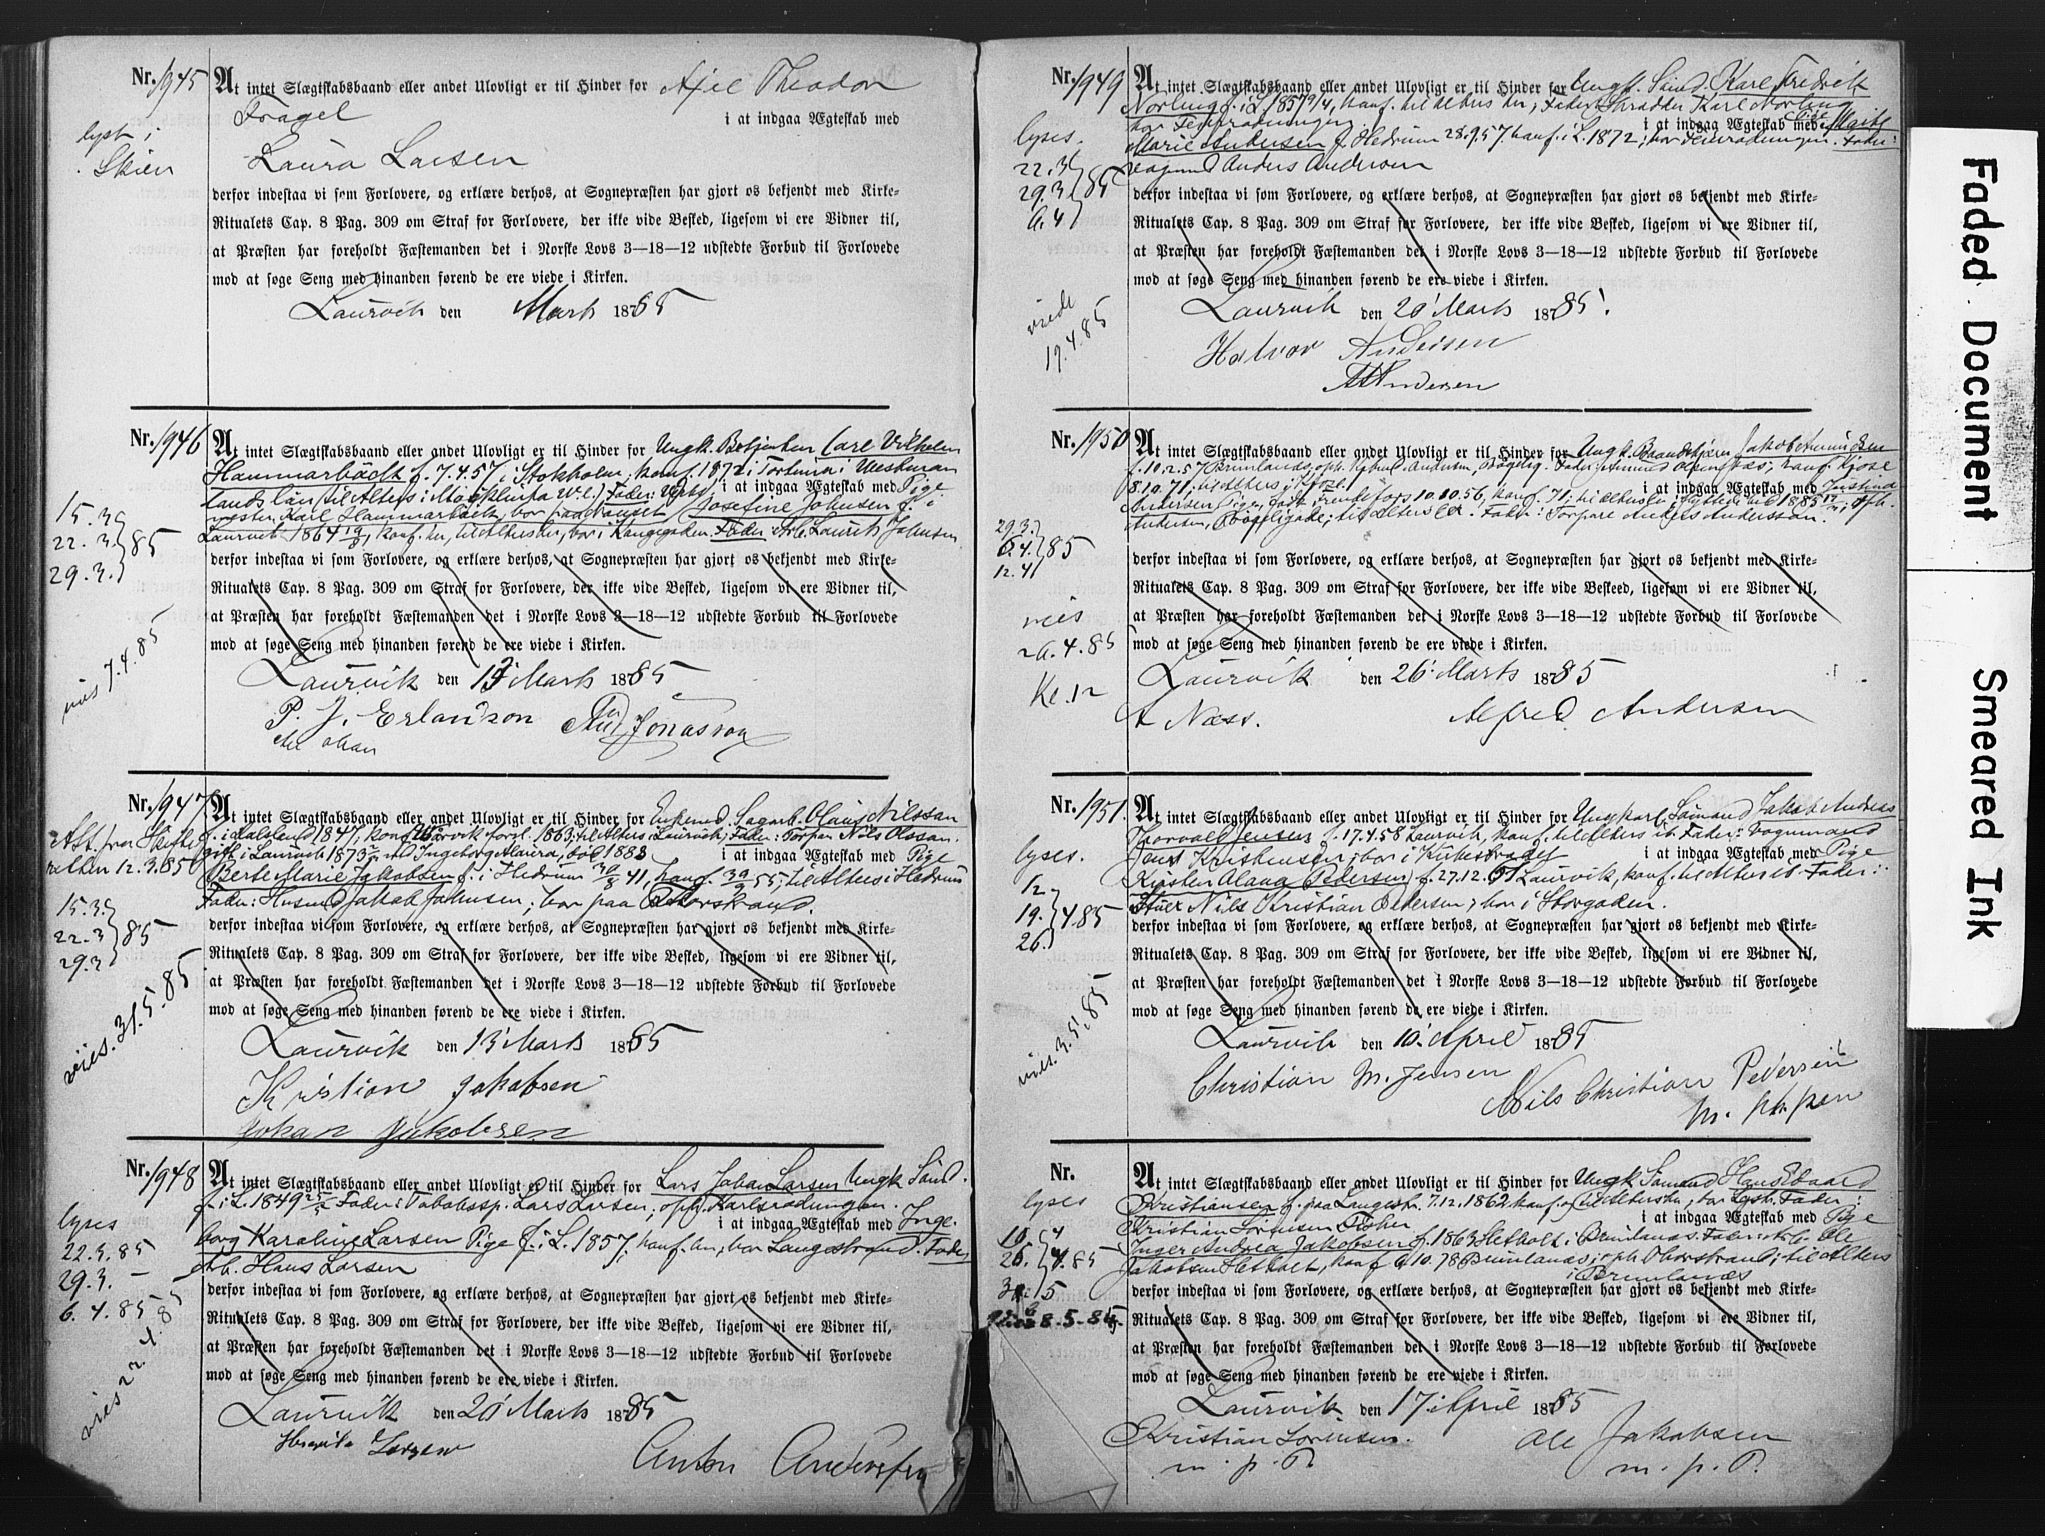 Nr. 1945
At intet Slægtskabsbaand eller andet Ulovligt er til Hinder for Axel Theodor
Fragel i at indgaa Ægteskab med
lyst i
Skien
Laura Larsen
derfor indestaa vi som Forlovere, og erklære derhos, at Sognepræsten har gjort os bekjendt med Kirke-
Ritualets Cap. 8 Pag. 309 om Straf for Forlovere, der ikke vide Besked, ligesom vi ere Vidner til,
at Præsten har foreholdt Fæstemanden det i Norske Lovs 3—18—12 udstedte Forbud til Forlovede
mod at søge Seng med hinanden førend de ere viede i Kirken.
Laurvik den Marts 1885
Nr. 1946
At intet Slægtskabsbaand eller andet Ulovligt er til Hinder for Ungk. Carl Vilhelm
Hammarbäck f. 7.4.57 i Stokholm, konf. 1872 i
i at indgaa Ægteskab med Pige
Karl Hammarbäck, bor paa Josefine Johnsen f. i
Laurvik 1864 konf. her, til Alters her, bor i Kongegaden. Fader: Arb. Laurits Johnsen
15.3
22.3 85
29.3.
derfor indestaa vi som Forlovere, og erklære derhos, at Sognepræsten har gjort os bekjendt med Kirke-
Ritualets Cap. 8 Pag. 309 om Straf for Forlovere, der ikke vide Besked, ligesom vi ere Vidner til,
at Præsten har foreholdt Fæstemanden det i Norske Lovs 3—18—12 udstedte Forbud til Forlovede
mod at søge Seng med hinanden førend de ere viede i Kirken.
vies 7.4.85
Laurvik den Marts 1885
P. J. Erlandson Jonasson
Nr. 1947
At intet Slægtskabsbaand eller andet Ulovligt er til Hinder for Enkemd. Sagarb. Olaus Nilssan
f. i Dalsland 1847, konf. 1863, til Alters i Laurvik, Fader: Torpar Nils Olssan.
gift i Laurvik 1873 m/ Ingeborg død 1883 i at indgaa Ægteskab med Pige
Berte Marie Jakobsen f. i Hedrum 30/8 41, konf. 55, til Alters i Hedrum
Fader: Husmd Jakob Johnsen, bor paa
Att. fra Skifte-
retten 12.3.85
15.3.
22.3 85
29.3
derfor indestaa vi som Forlovere, og erklære derhos, at Sognepræsten har gjort os bekjendt med Kirke-
Ritualets Cap. 8 Pag. 309 om Straf for Forlovere, der ikke vide Besked, ligesom vi ere Vidner til,
at Præsten har foreholdt Fæstemanden det i Norske Lovs 3—18—12 udstedte Forbud til Forlovede
mod at søge Seng med hinanden førend de ere viede i Kirken.
vies. 31.5.85
Laurvik den 13' Marts 1885
Kristion Jakobsen
Johan Jakobsen
Nr. 1948
At intet Slægtskabsbaand eller andet Ulovligt er til Hinder for Lars Johan Larsen Ungk Sømd.
f. i L. 1849 Fader: Tobakssp. Lars Larsen, oph. Karlsrødningen.
i at indgaa Ægteskab med Inge-
borg Karoline Larsen Pige f. i L. 1857, konf. her, bor Langestrand. Fader
Arb. Hans Larsen
lyses
22.3.85
29.3. –
6.4.85
derfor indestaa vi som Forlovere, og erklære derhos, at Sognepræsten har gjort os bekjendt med Kirke-
Ritualets Cap. 8 Pag. 309 om Straf for Forlovere, der ikke vide Besked, ligesom vi ere Vidner til,
at Præsten har foreholdt Fæstemanden det i Norske Lovs 3—18—12 udstedte Forbud til Forlovede
mod at søge Seng med hinanden førend de ere viede i Kirken.
vies 22.4.85
Laurvik den 20' Marts 1885
Anton Andersen
Nr. 1949
At intet Slægtskabsbaand eller andet Ulovligt er til Hinder for Ungk. Sømd. Karl Fredrik
Norling f. i L. 1851 konf. til Alters her, Fader: Skrædder Karl Norling
i at indgaa Ægteskab med
Marie Andersen f. Hedrum 28.9.57. konf. i L. 1872, bor Fader:
Anders Andersen
lyses.
22.3
29.3 85
6.4
derfor indestaa vi som Forlovere, og erklære derhos, at Sognepræsten har gjort os bekjendt med Kirke-
Ritualets Cap. 8 Pag. 309 om Straf for Forlovere, der ikke vide Besked, ligesom vi ere Vidner til,
at Præsten har foreholdt Fæstemanden det i Norske Lovs 3—18—12 udstedte Forbud til Forlovede
mod at søge Seng med hinanden førend de ere viede i Kirken.
viede
19.4.85
Laurvik den 20' Marts 1885.
Halvor Andersen
Andersen
Nr. 1950
At intet Slægtskabsbaand eller andet Ulovligt er til Hinder for Ungk. Jakob Amundsen
f. 10.2.57 Brunlanæs, oph. konf. Kjose
8.10.71, til Alters i Kjose. i at indgaa Ægteskab med Justina
Andersen, Pige, født i 10.10.56, konf. 71, til Alters
Andersen, til Alters Fader: Torpare Anders Anderssan.
29.3.
6.4. 85
12.4
derfor indestaa vi som Forlovere, og erklære derhos, at Sognepræsten har gjort os bekjendt med Kirke-
Ritualets Cap. 8 Pag. 309 om Straf for Forlovere, der ikke vide Beskeed, ligesom vi ere Vidner til,
at Præsten har foreholdt Fæstemanden det i Norske Lovs 3—18—12 udstedte Forbud til Forlovede
mod at søge Seng med hinanden førend de ere viede i Kirken.
vies
26.4.85
Kl. 12
Laurvik den 26' Marts 1885
A Næss. Alfred Andersen
Nr. 1951.
At intet Slægtskabsbaand eller andet Ulovligt er til Hinder for Ungkarl Sømand Jakob Andreas
Thorvald Jensen f. 17.4.58 Laurvik, konf. til Alters ib. Fader: Vognmand
Jens Kristensen, bor i i at indgaa Ægteskab med Pige
Kirsten Olava Pedersen f. 27.12. Laurvik, konf. til Alters ib. Fader:
Nils Christian Pedersen, bor i Storgaden.
lyses.
12
19. 4.85
26.
derfor indestaa vi som Forlovere, og erklære derhos, at Sognepræsten har gjort os bekjendt med Kirke-
Ritualets Cap. 8 Pag. 309 om Straf for Forlovere, der ikke vide Besked, ligesom vi ere Vidner til,
at Præsten har foreholdt Fæstemanden det i Norske Lovs 3—18—12 udstedte Forbud til Forlovede
mod at søge Seng med hinanden førend de ere viede i Kirken.
vies. 3.5.85
Laurvik den 10' April 1885
Christian M. Jensen Nils Christian Pedersen
m. ph. pen
Nr.
At intet Slægtskabsbaand eller andet Ulovligt er til Hinder for Ungk Sømand Hans Edvard
Kristiansen f. paa Langestr. 7.12.1862 konf. og til Alters her, bor Lgstr. Fader:
Kristian Sørensen Fisker i at indgaa Ægteskab med Pige
Inger Andrea Jakobsen f. 1863 i Brunlanæs. Fader: Arb. Ole
Jakobsen konf. 10.78 Brunlanæs, oph. til Alters
i Brunlanæs
lyses
19. 4
26. 4.85
5
8.5.85
derfor indestaa vi som Forlovere, og erklære derhos, at Sognepræsten har gjort os bekjendt med Kirke-
Ritualets Cap. 8 Pag. 309 om Straf for Forlovere, der ikke vide Besked, ligesom vi ere Vidner til,
at Præsten har foreholdt Fæstemanden det i Norske Lovs 3—18—12 udstedte Forbud til Forlovede
mod at søge Seng med hinanden førend de ere viede i Kirken.
Laurvik den 17' April 1885
Kristian Sørensen. Ole Jakobsen
m. p. P. m. p. P.
Faded Document
Smeared Ink